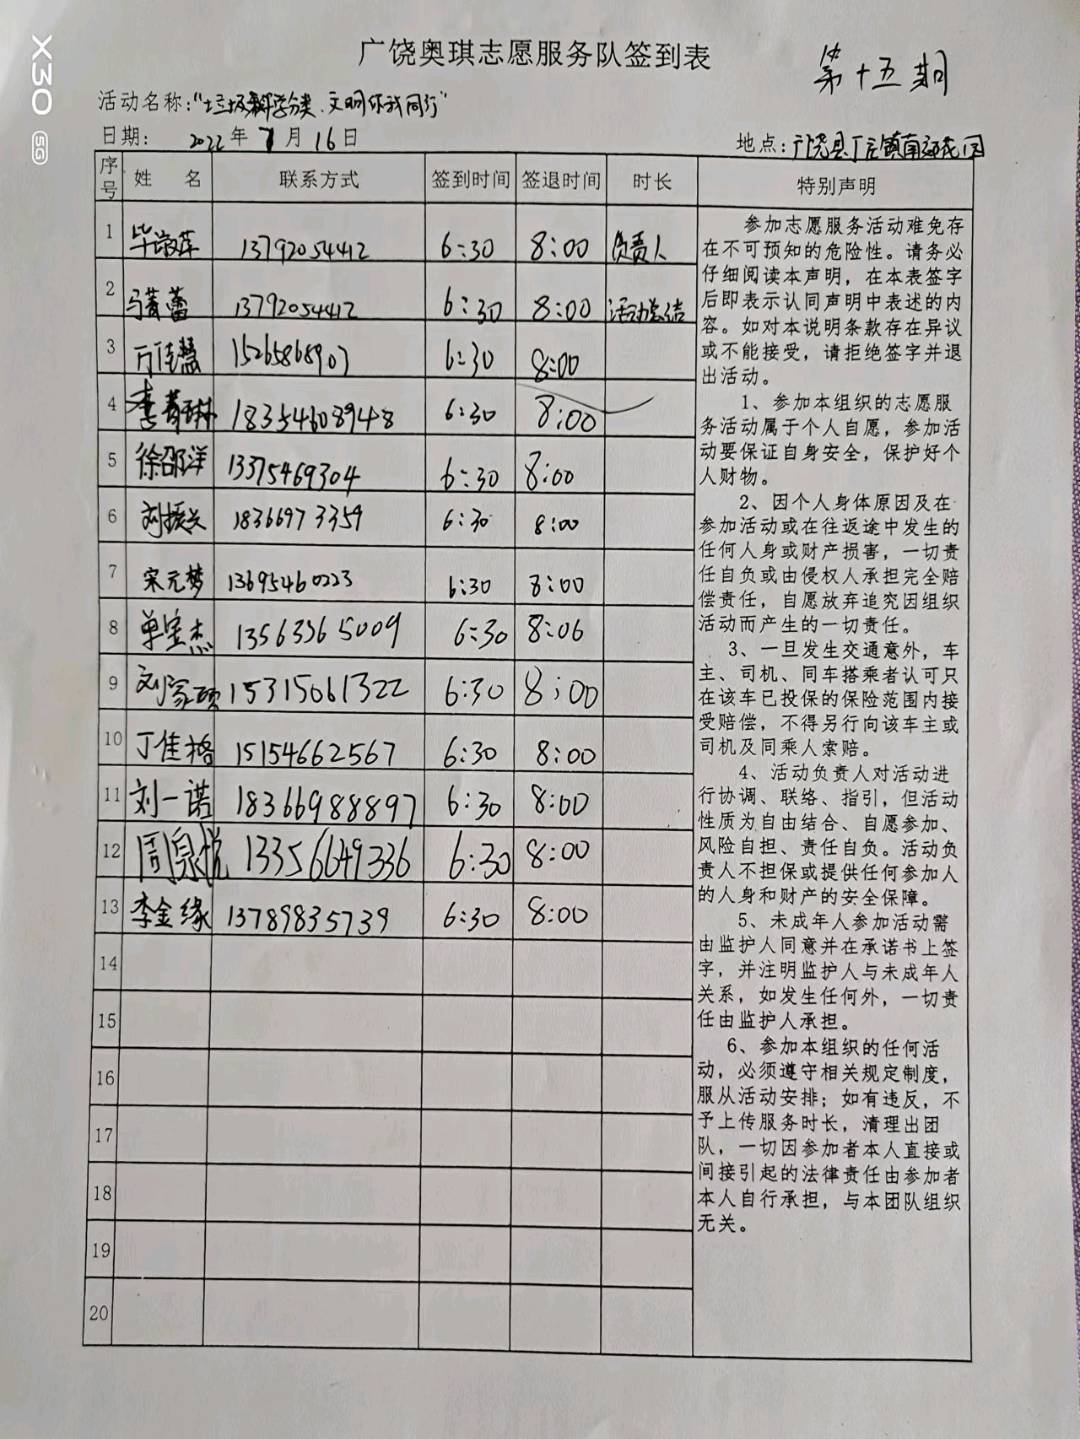 X30 5G
广饶奥琪志愿服务队签到表
第十五期
活动名称:"垃圾科学分类.文明你我同行"
日期: 2022年7月16日
地点:广饶县广饶镇南
序号 姓 名 联系方式 签到时间 签退时间 时长 特别声明
1 毕萍 13792054412 6:30 8:00 负责人
2 马菁蕾 13792054412 6:30 8:00 活动总结
3 万佳慧 15265868907 6:30 8:00
4 李菁琳 183546089948 6:30 8:00
5 徐邵洋 13375469304 6:30 8:00
6 刘振兴 18366973359 6:30 8:00
7 宋元梦 13695460223 6:30 8:00
8 单宝杰 13563365009 6:30 8:06
9 刘家硕 15315061322 6:30 8:00
10 丁佳格 15154662567 6:30 8:00
11 刘一诺 18366988897 6:30 8:00
12 周泉悦 13356649336 6:30 8:00
13 李金缘 13789835739 6:30 8:00
14
15
16
17
18
19
20
参加志愿服务活动难免存
在不可预知的危险性。请务必
仔细阅读本声明,在本表签字
后即表示认同声明中表述的内
容。如对本说明条款存在异议
或不能接受,请拒绝签字并退
出活动。
1、参加本组织的志愿服
务活动属于个人自愿,参加活
动要保证自身安全,保护好个
人财物。
2、因个人身体原因及在
参加活动或在往返途中发生的
任何人身或财产损害,一切责
任自负或由侵权人承担完全赔
偿责任,自愿放弃追究因组织
活动而产生的一切责任。
3、一旦发生交通意外,车
主、司机、同车搭乘者认可只
在该车已投保的保险范围内接
受赔偿,不得另行向该车主或
司机及同乘人索赔。
4、活动负责人对活动进
行协调、联络、指引,但活动
性质为自由结合、自愿参加、
风险自担、责任自负。活动负
责人不担保或提供任何参加人
的人身和财产的安全保障。
5、未成年人参加活动需
由监护人同意并在承诺书上签
字,并注明监护人与未成年人
关系,如发生任何外,一切责
任由监护人承担。
6、参加本组织的任何活
动,必须遵守相关规定制度,
服从活动安排;如有违反,不
予上传服务时长,清理出团
队,一切因参加者本人直接或
间接引起的法律责任由参加者
本人自行承担,与本团队组织
无关。